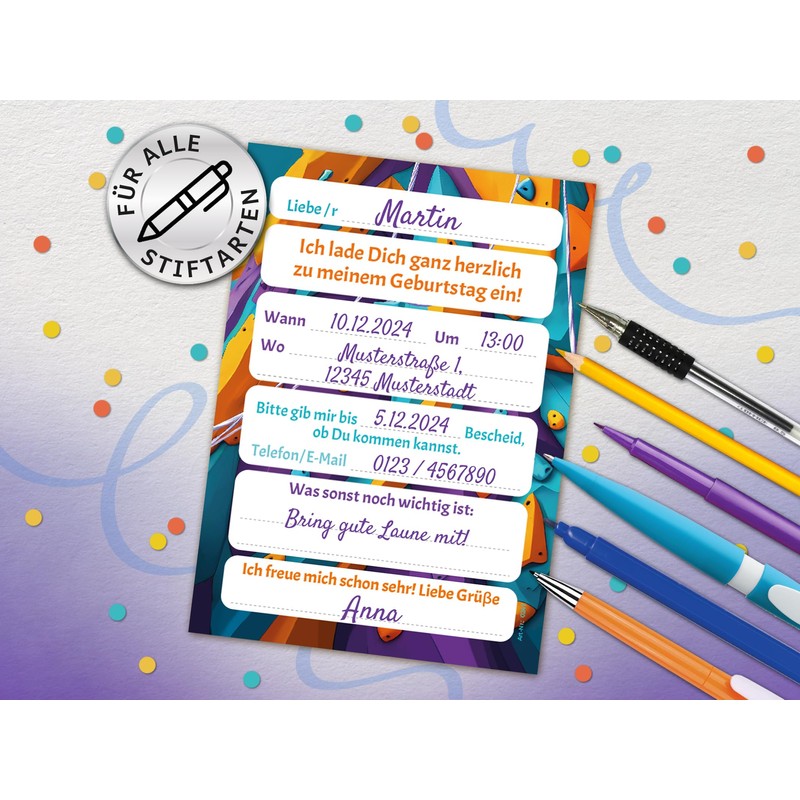 FÜR ALLE
STIFTARTEN
Liebe/r Martin
Ich lade Dich ganz herzlich
zu meinem Geburtstag ein!
Wann 10.12.2024 Um 13:00
Wo Musterstraße 1,
12345 Musterstadt
Bitte gib mir bis 5.12.2024 Bescheid,
ob Du kommen kannst.
Telefon/E-Mail 0123 / 4567890
Was sonst noch wichtig ist:
Bring gute Laune mit!
Ich freue mich schon sehr! Liebe Grüße
Anna